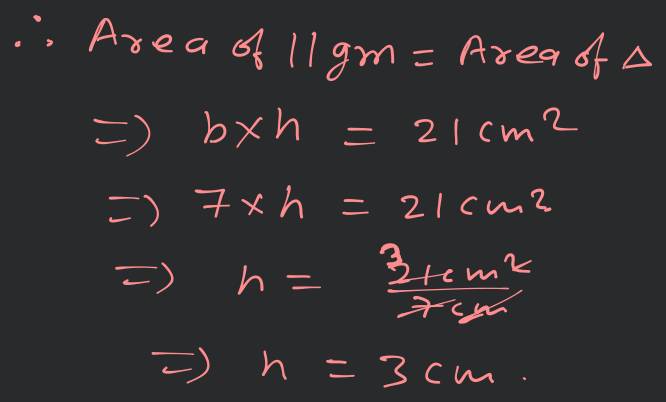 ∴ Area of ||gm = Area of Δ
⇒ b×h = 21cm²
⇒ 7×h = 21cm²
⇒ h = 3 21cm² / 7cm
⇒ h = 3cm.